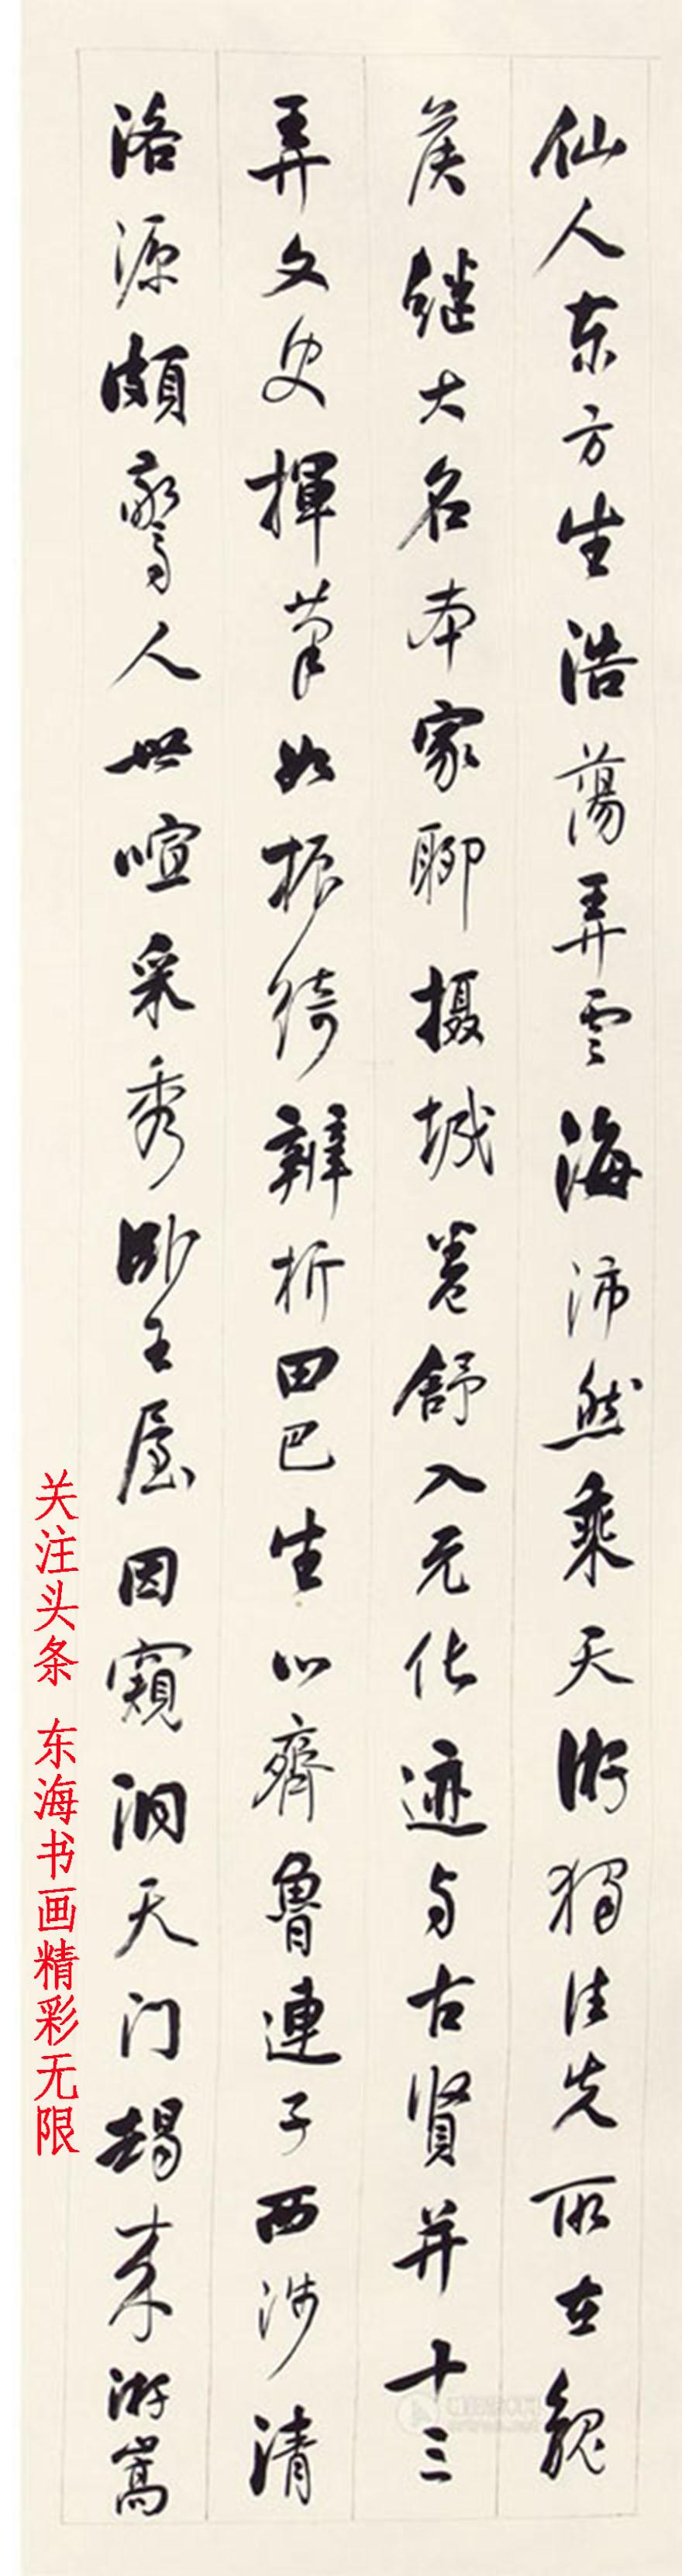 仙人东方生浩蕩弄雲海沛然乘天游獨往失所在魏
侯继大名本家聊摄城卷舒入元化迹与古贤并十三
弄文史揮筆如振绮辨折田巴生心齊魯連子西涉清
洛源頗驚人世喧采秀卧王屋因窺洞天门朅来游嵩
关注头条 东海书画精彩无限